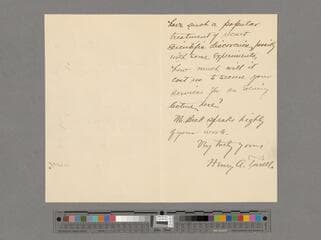 have such a popular
treatment of recent
scientific discoveries, possibly
with some experiments,
how much will it
cost us to secure your
services for an evening
lecture here?
Mr. speaks highly
of your work.
Very truly yours
Henry A.